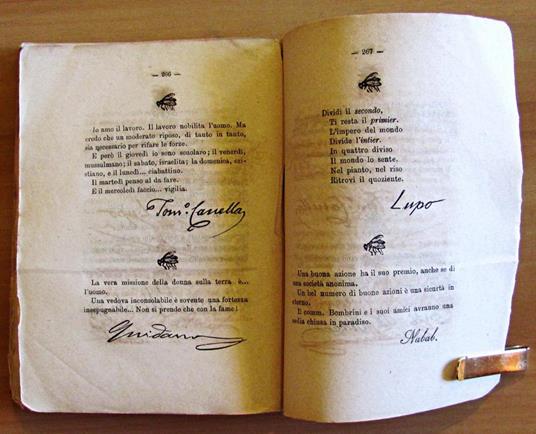 — 266 —
Io amo il lavoro. Il lavoro nobilita l'uomo. Ma
credo che un moderato riposo, di tanto in tanto,
sia necessario per rifare le forze.
E però il giovedì io sono scolaro; il venerdì,
mussulmano; il sabato, israelita; la domenica, cri-
stiano, e il lunedì... ciabattino.
Il martedì penso al da fare.
E il mercoledì faccio... vigilia.
La vera missione della donna sulla terra è...
l'uomo.
Una vedova inconsolabile è sovente una fortezza
inespugnabile... Non si prende che con la fame!
— 267 —
Dividi il secondo,
Ti resta il primier.
L'impero del mondo
Divide l'intier.
In quattro diviso
Il mondo lo sente.
Nel pianto, nel riso
Ritrovi il quoziente.
Lupo
Una buona azione ha il suo premio, anche se di
una società anonima.
Un bel numero di buone azioni è una sicurtà in
eterno.
Il comm. Bombrini e i suoi amici avranno una
sedia chiusa in paradiso.
Nabab.